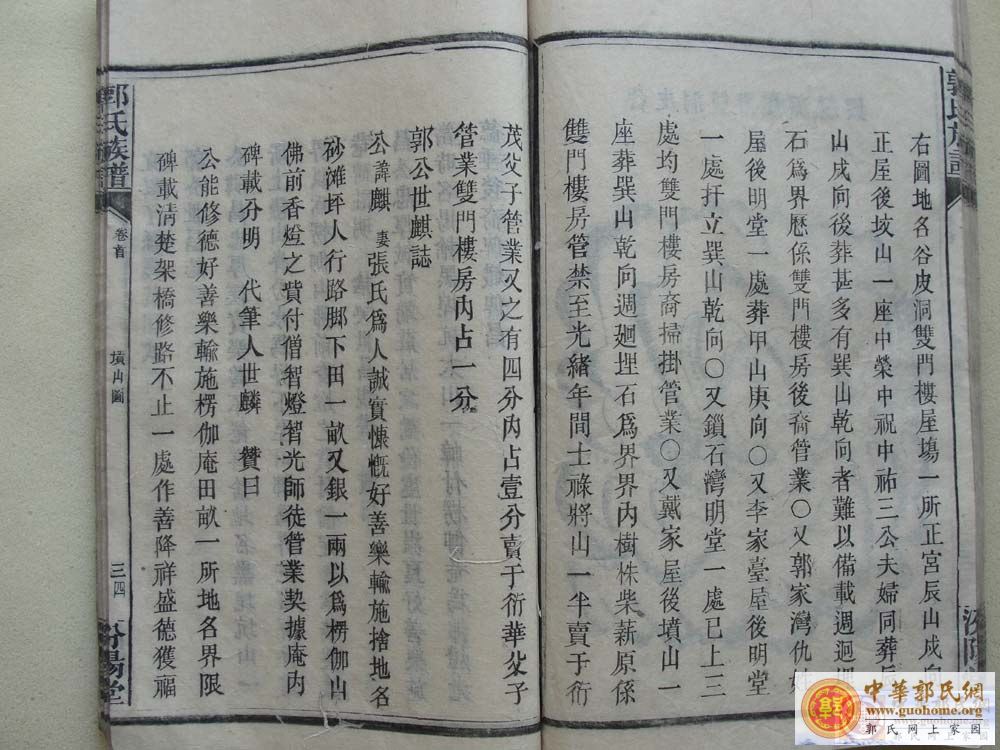 郭氏族譜
右圖地名谷皮洞雙門樓屋塲一所正宮辰山戍
正屋後坡山一座中榮中祝中祐三公夫婦同葬
山戍向後葬甚多有巽山乾向者難以備載週迴
石爲界歷係雙門樓房後裔管業〇又郭家灣仇
屋後明堂一處葬甲山庚向〇又李家臺屋後明堂
一處扦立巽山乾向〇又鎖石灣明堂一處已上三
處均雙門樓房裔掃掛管業〇又戴家屋後墳山一
座葬巽山乾向週廻埋石爲界界內樹株柴薪原係
雙門樓房管禁至光緒年間士祿將山一半賣于衍
茂父子管業又之有四分內占壹分賣于衍華父子
管業雙門樓房內占一分
郭公世麒誌
公諱麒 妻張氏爲人誠實慷慨好善樂輸施捨地名
砂灘坪人行路脚下田一畝又銀一兩以爲楞伽山
佛前香燈之貲付僧智燈智光師徒管業契據庵內
碑載分明 代筆人世麟 贊曰
公能修德好善樂輸施楞伽庵田畝一所地名界限
碑載清楚架橋修路不止一處作善降祥盛德獲福
郭氏族譜
卷首
墳山圖
三四
汾陽堂
中華郭氏網
www.guohome.org
郭氏网上家园